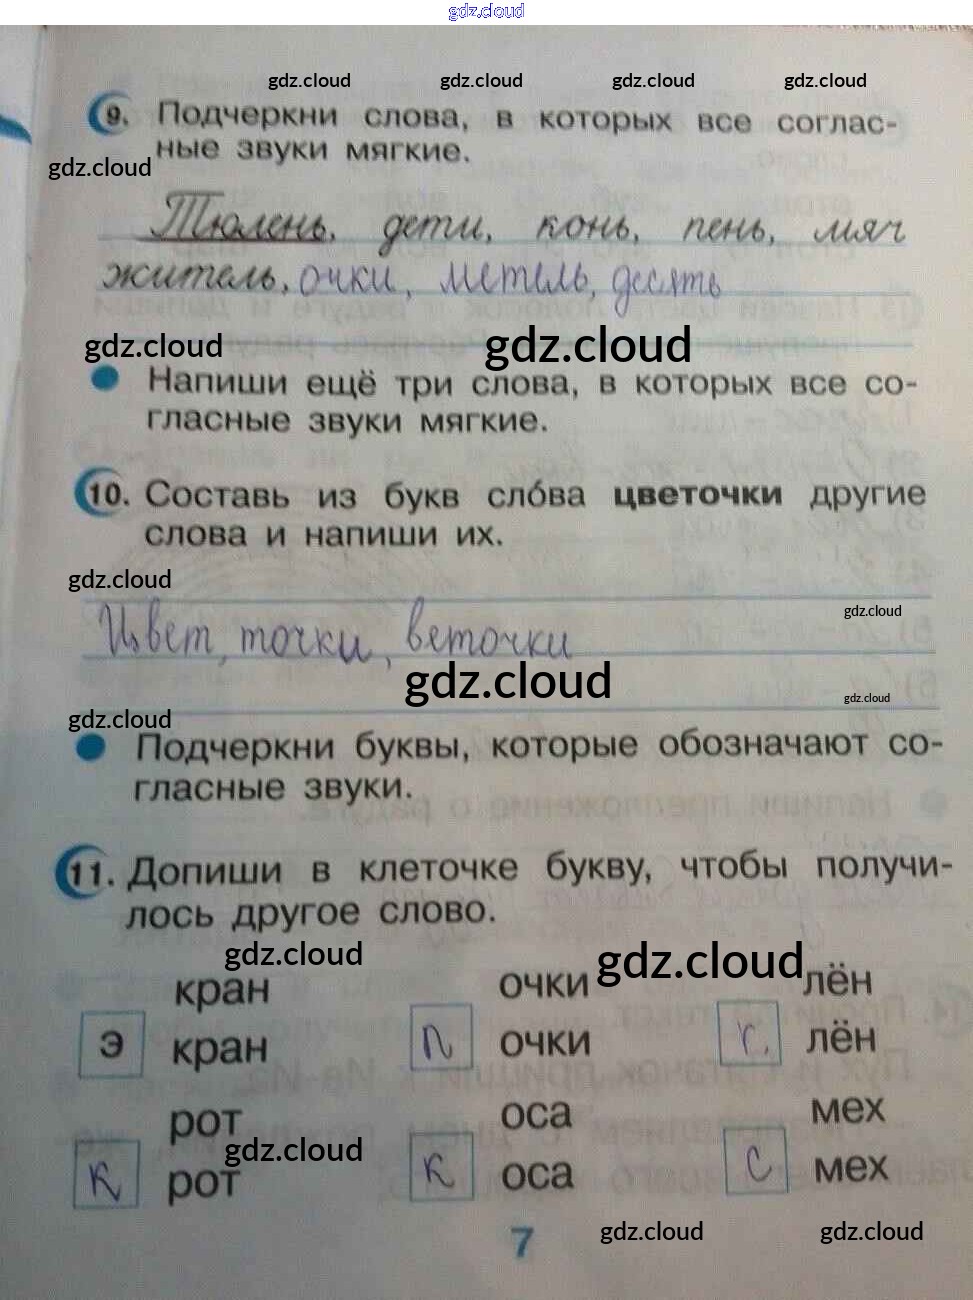 gdz.cloud
gdz.cloud gdz.cloud gdz.cloud gdz.cloud
9. Подчеркни слова, в которых все соглас-
ные звуки мягкие.
gdz.cloud
Тюлень, дети, конь, пень, мяч
житель, очки, метель, десять
gdz.cloud gdz.cloud
Напиши ещё три слова, в которых все со-
гласные звуки мягкие.
10. Составь из букв сло́ва цветочки другие
слова и напиши их.
gdz.cloud
gdz.cloud
Цвет, точки, веточки
gdz.cloud
gdz.cloud
gdz.cloud
Подчеркни буквы, которые обозначают со-
гласные звуки.
11. Допиши в клеточке букву, чтобы получи-
лось другое слово.
gdz.cloud gdz.cloud
кран очки лён
э кран п очки к лён
рот оса мех
gdz.cloud
к рот к оса с мех
7
gdz.cloud gdz.cloud